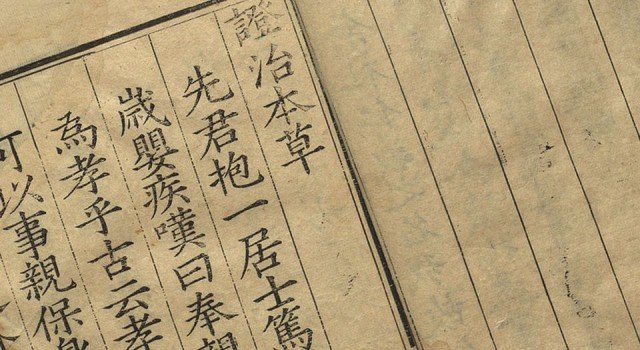 證治本草
先君抱一居士篤
嵗嬰疾嘆曰奉親
為孝乎古云孝
可以事親保身